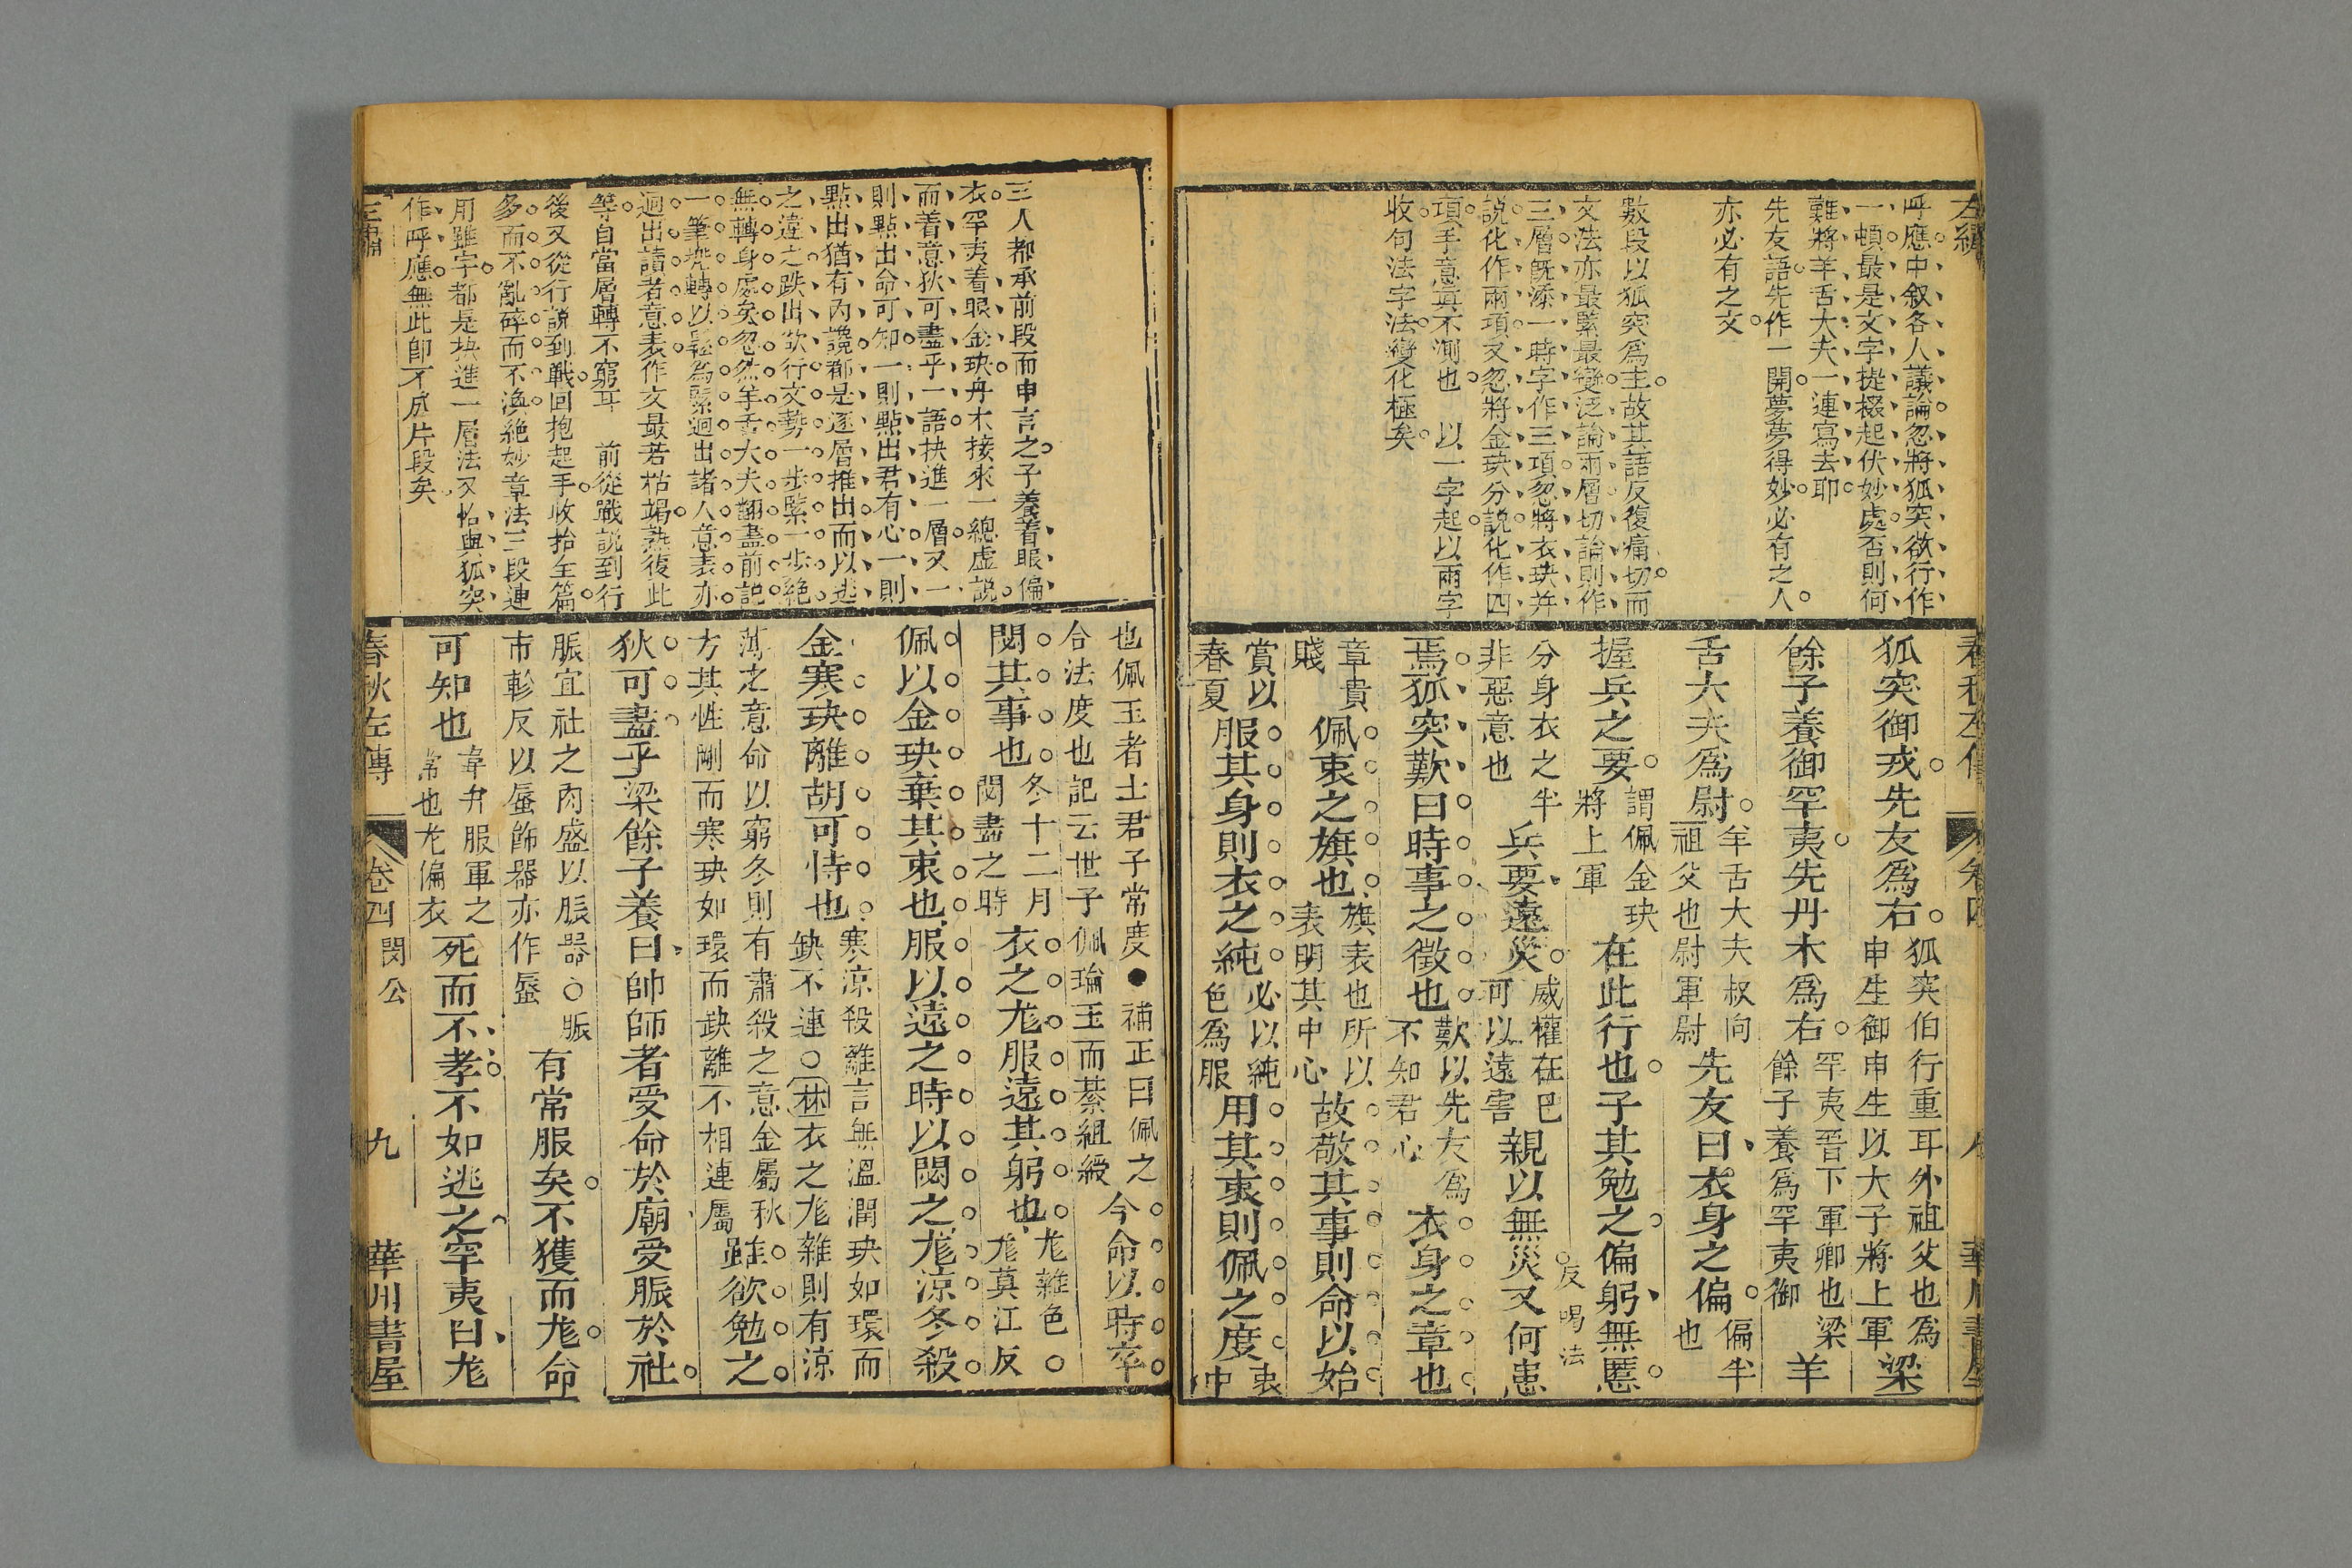 左繡
呼應中叙各人議論忽將狐突欲行作
一頓最是文字提掇起伏妙處否則何
難將羊舌大夫一連寫去耶
先友語先作一開夢夢得妙必有之人
亦必有之文
數段以狐突爲主故其語反復痛切而
文法亦最緊最變泛論兩層切論則作
三層旣添一時字作三項忽將衣玦幷
説化作兩項又忽將金玦分説化作四
項手意眞不測也 以一字起以兩字
收句法字法變化極矣
春秋左傳 卷四 八 華川書屋
狐突御戎先友爲右狐突伯行重耳外祖父也爲申生御申生以大子將上軍梁
餘子養御罕夷先丹木爲右罕夷晉下軍卿也梁餘子養爲罕夷御羊
舌大夫爲尉羊舌大夫叔向祖父也尉軍尉先友曰衣身之偏偏半也
握兵之要謂佩金玦將上軍在此行也子其勉之偏躬無慝
分身衣之半非惡意也兵要遠災威權在巳可以遠害親以無災又何患
焉狐突歎曰時事之徵也歎以先友爲不知君心衣身之章也
章貴賤佩衷之旗也旗表也所以表明其中心故敬其事則命以始
賞以春夏服其身則衣之純必以純色爲服用其衷則佩之度衷中
三人都承前段而申言之子養着眼偏
衣罕夷着眼金玦丹木接來一總虛説
而着意狄可盡乎一語抉進一層又一
則點出命可知一則點出君有心一則
點出猶有內讒都是逐層推出而以逃
之違之跌出欲行文勢一步緊一步絶
無轉身處矣忽然羊舌大夫翻盡前説
一筆撓轉以鬆爲緊迥出諸人意表亦
迥出讀者意表作文最若粘竭熟復此
等自當層轉不窮耳 前從戰説到行
後又從行説到戰回抱起手收拾全篇
多而不亂碎而不渙絶妙章法三段連
用雖字都是抉進一層法又恰與狐突
作呼應無此卽不成片段矣
也佩玉者士君子常度●補正曰佩之合法度也記云世子佩瑜玉而綦組綬今命以時卒
閟其事也冬十二月閟盡之時衣之尨服遠其躬也尨雜色○尨莫江反
佩以金玦棄其衷也服以遠之時以閟之尨涼冬殺
金寒玦離胡可恃也寒涼殺離言無溫潤玦如環而缺不連○林衣之尨雜則有涼
薄之意命以窮冬則有肅殺之意金屬秋方其性剛而寒玦如環而缺離不相連屬雖欲勉之
狄可盡乎梁餘子養曰帥師者受命於廟受脤於社
脤宜社之肉盛以脤器○脤市軫反以蜃飾器亦作蜃有常服矣不獲而尨命
可知也韋弁服軍之常也尨偏衣死而不孝不如逃之罕夷曰尨
春秋左傳 卷四 閔公 九 華川書屋